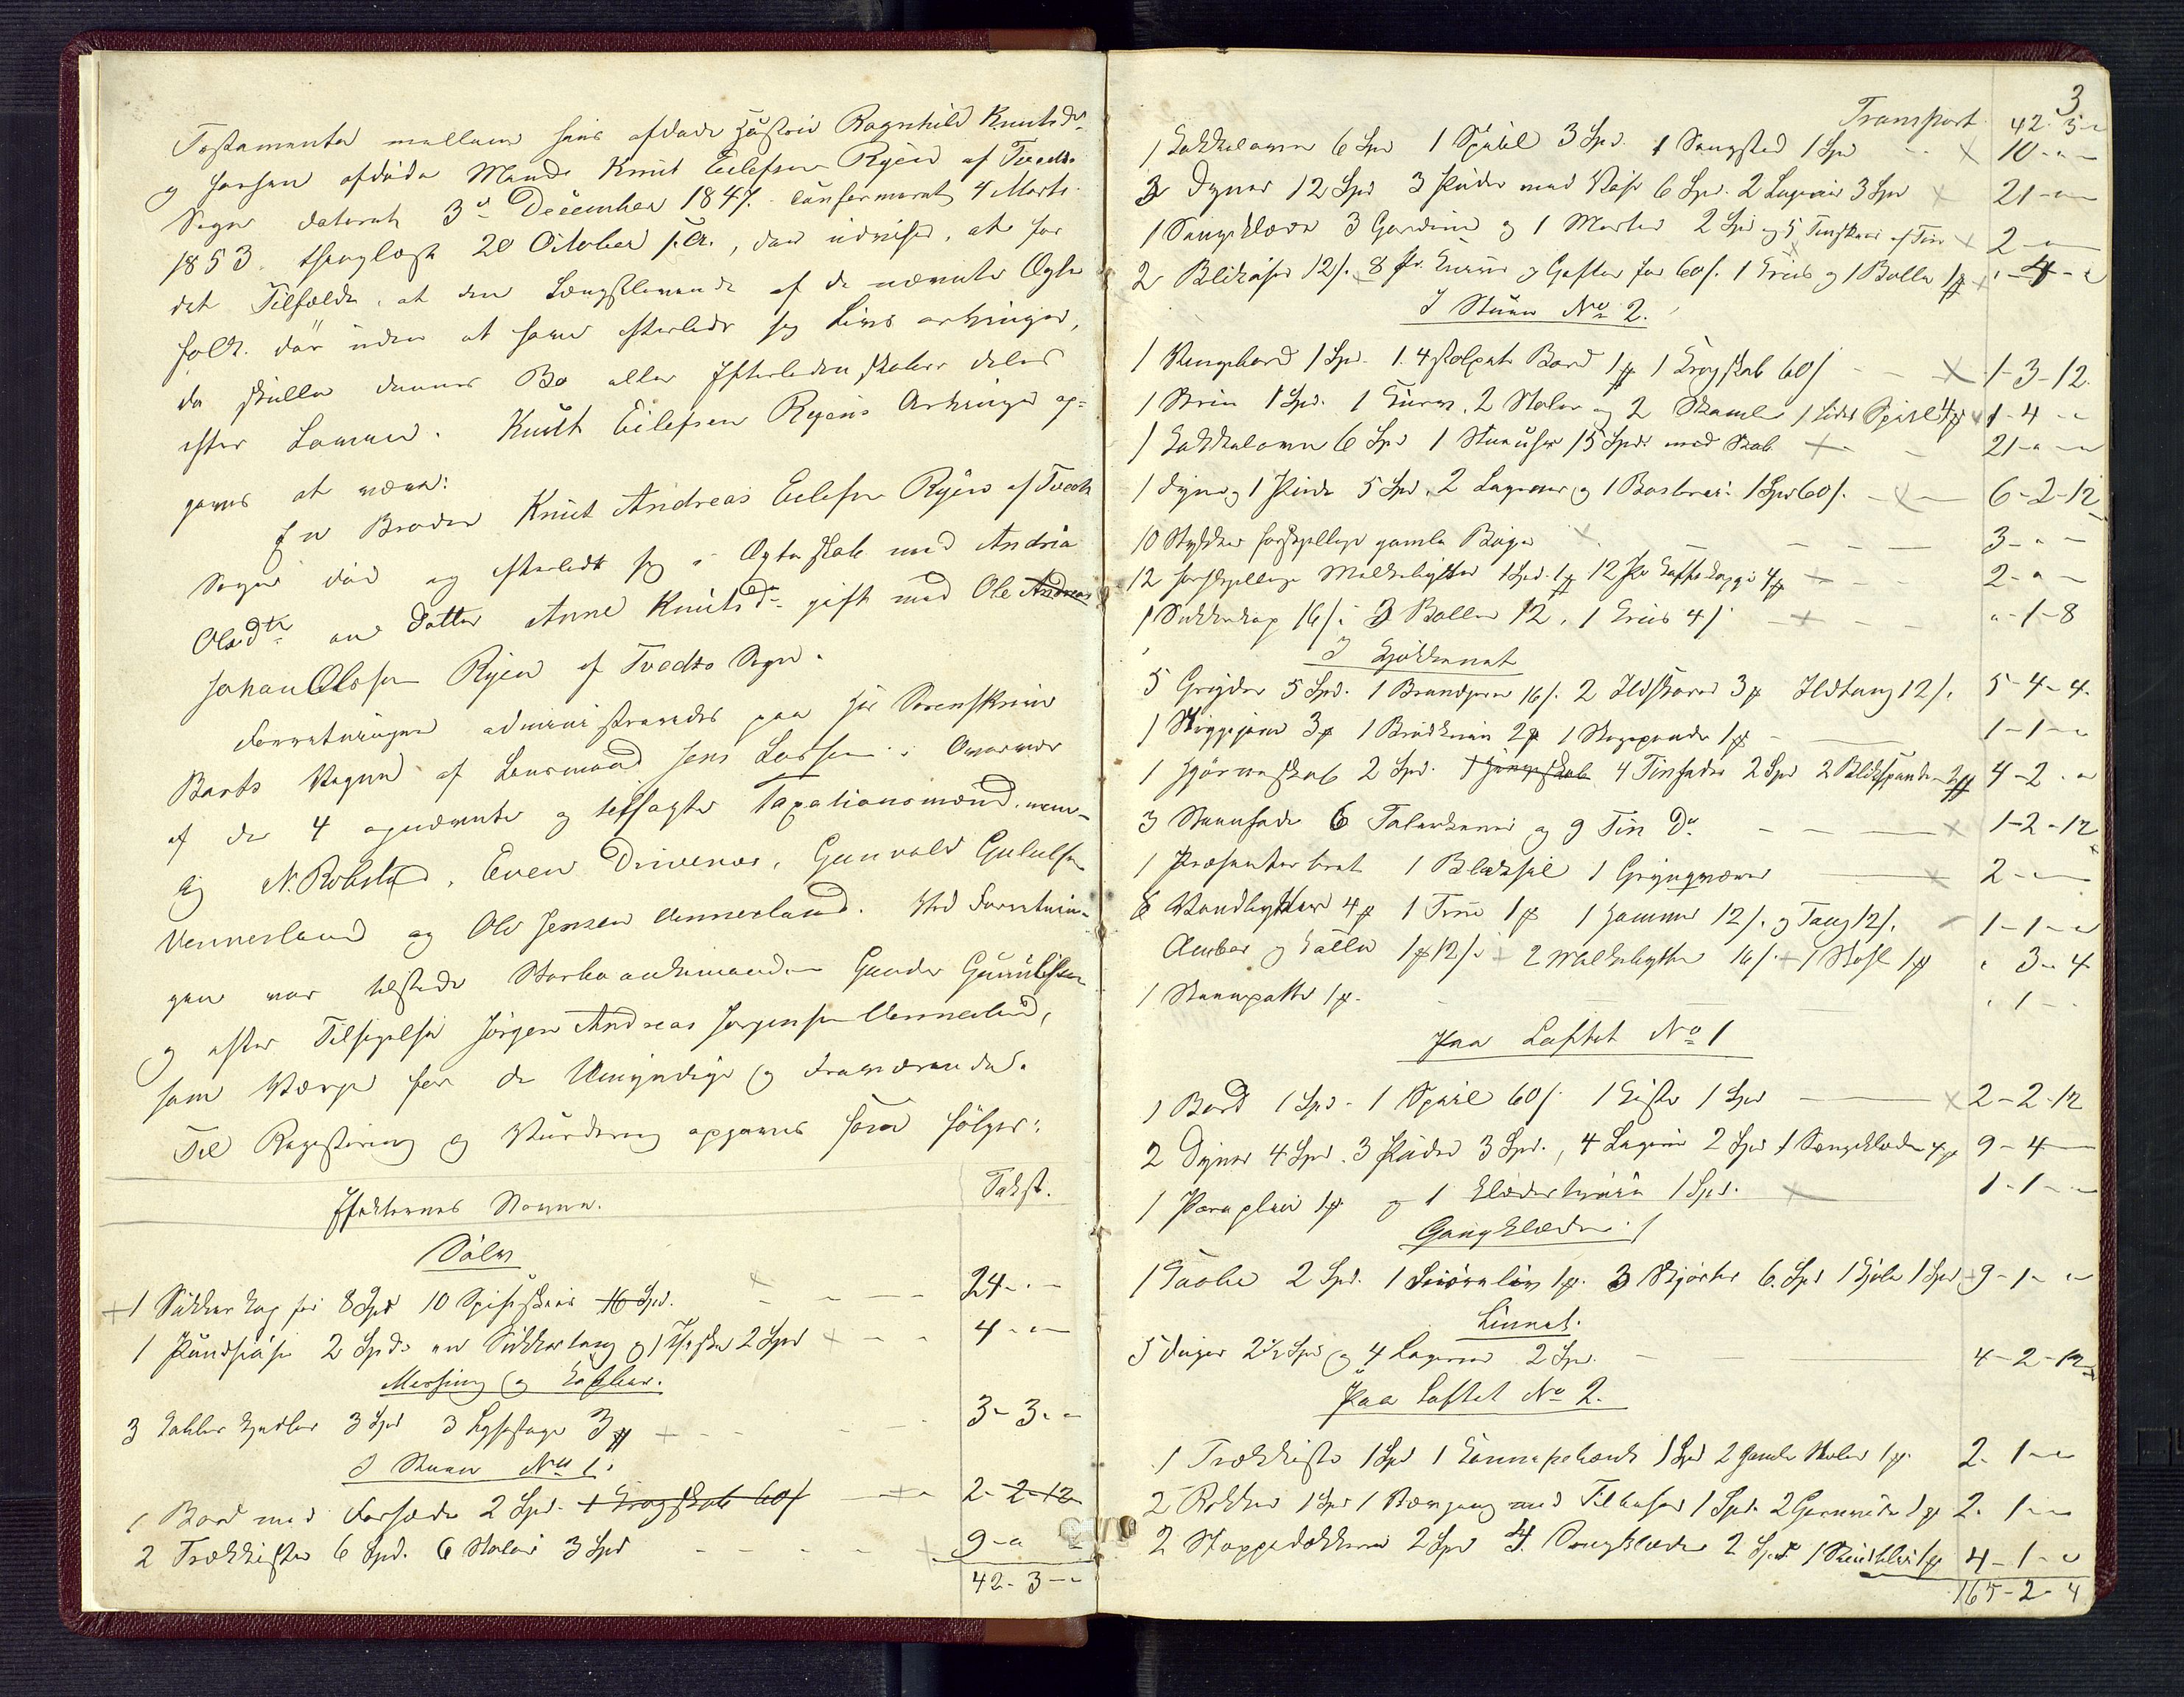 Testamenta mellem hans afdøde Hustru Ragnhild Knutsdr
og hendes afdøde Mand Knut Eilefsen Ryen af Tvedts
Sogn dateret 3d December 1847. confirmeret 4 Marts
1853. thinglæst 20 October s.A., der udviser, at for
det Tilfælde, at den Længstlevende af de nævnte Ægte
folk døer uden at have efterladt sig Livs arvinger,
da skulle dennes Bo eller Efterladenskaber deles
efter Loven. Knut Eilefsen Ryens Arvinger op-
gaves at være:
En Broder Knut Andreas Eilefsen Ryen af Tvedt
Sogn død og efterladt sig i Ægteskab med Andrea
Olsdtr en Datter Anne Knutsdr gift med Ole Andreas
Johan Olsen Ryen af Tvedts Sogn.
Forretningen administreredes paa Hr Sorenskriver
Barts Vegne af Lensmand Jens Larsen i
af de 4 opnævnte og tilsagte Taxationsmænd. nem-
lig N. Robstad, Even Drivenes, Gunvald
Vennerland og Ole Jensen Vennerland. Ved Forretnin-
gen var tilstede Sterboenkemanden Gunder
og efter Tilsigelse Jørgen Andreas Jørgensen Vennerland,
som Værge for de Umyndige og Fraværende.
Til Registering og Vurdering opgaves som følger:
Effecternes Navne. Takst.
Sølv
1 Sukker kop for 8 Spd 10 Spiseskeer 16 Spd. 24 - " -
1 2 Spd. en Suckertang og 1 Theske 2 Spd 4 - " -
Messing og Kobber.
3 Kobber Kjedler 3 Spd 3 Lysestager 3 ℔ 3 - 3 - "
I Stuen No 1.
1 Bord med Forsæde 2 Spd. 1 Krogskab 60 ß 2 - 2 - 12
2 Trækkister 6 Spd. 6 Stoler 3 Spd 9 - "
42 - 3 - "
3
Transport 42 - 3 - "
1 Kakkelovn 6 Spd 1 Speil 3 Spd. 1 Sengsted 1 Spd 10 - " -
3 Dyner 12 Spd 3 Puder med Vaar 6 Spd. 2 Lagener 3 Spd 21 - " -
1 Sengklæde 3 Gardiner og 1 Morter 2 Spd og 5 af Tin 2 - " -
2 12 ß. 8 Pr. Knive og Gafler for 60 ß. 1 Kruus og 1 Bolle 1 ℔ " - 4 - "
I Stuen No 2.
1 Vængebord 1 Spd. 1. 4 stolpet Bord 1 ℔ 1 Krogskab 60 ß 1 - 3 - 12.
1 Skrin 1 Spd. 1 Kurv. 2 Stoler og 2 Skamler 1 Lidet Speil 4 1 - 4 - "
1 Kakkelovn 6 Spd 1 Stueuhr 15 Spd med Skab 21 - " - "
1 Dyne og 1 Pude 5 Spd. 2 Lagener og 1 1 Spd 60 ß. 6 - 2 - 12
10 Stykker forskjellige gamle Bøger 3 - " -
12 forskjellige Melkebytter 1 Spd. 1 ℔ 12 Pr Kaffekopper 4 ℔ 2 - " -
1 Sukkerkop 16 ß. 3 Boller 12, 1 Kruus 4 ß " - 1 - 8
I Kjøkkenet
5 Gryder 5 Spd. 1 Brandjern 16 ß. 2 Ildskarer 3 ℔ Ildtang 12 ß. 5 - 4 - 4.
1 Strygejern 3 ℔ 1 Brødkniv 2 ℔ 1 Stegepande 1 ℔ 1 - 1 - "
1 Hjørneskab 2 Spd. 1 Hængeskab 4 Tinfader 2 Spd 2 Blikspande 2 ℔ 4 - 2 - "
3 Steenfade 6 Talerkener og 9 Tin Do 1 - 2 - 12
1 Præsenterbret 1 1 2 - " -
8 Vandbytter 4 ℔ 1 1 ℔ 1 Hammer 12 ß. og Tang 12 ß. 1 - 1 - "
Ambar og Kolle 1 ℔ 12 ß. 2 Melkebytter 16 ß. 1 1 ℔ " 3 - 4
1 Steenpotte 1 ℔. " 1 - "
Paa Loftet No 1
1 Bord 1 Spd. 1 Speil 60 ß. 1 Kiste 1 Spd 2 - 2 - 12
2 Dyner 4 Spd. 3 Puder 3 Spd., 4 Lagener 2 Spd 1 Sengklæde 4 ℔ 9 - 4 -
1 Paraplui 1 ℔ og 1 1 Spd. 1 - 1 - "
Gangklæder.
1 Kaabe 2 Spd. 1 Snøreliv 1 ℔. 3 Skjørter 6. Spd 1 Kjole 1 Spd 9 - 1 - "
Linnet.
5 Duger 2½ Spd og 4 Lagener 2 Spd. 4 - 2 - 12
Paa Loftet No 2.
1 Trækkiste 1 Spd 1 Kannapebænk 1 Spd 2 gamle Stoler 1 ℔. 2 - 1 - "
2 Rokker 1 Spd 1 Vævgang med Tilbehør 1 Spd. 2 Garnvinder 1 ℔ 2 - 1 - "
2 Stoppedækkener 2 Spd 4 Sengklæder 2 Spd 1 1 ℔ 4 - 1 - "
165 - 2 - 4